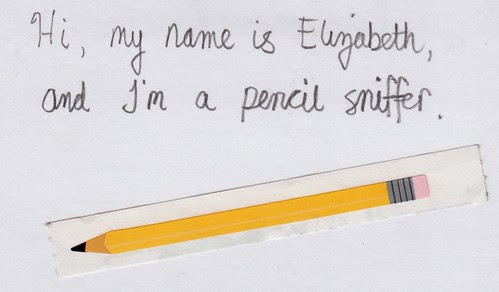 Hi, my name is Elizabeth,
and I'm a pencil sniffer.